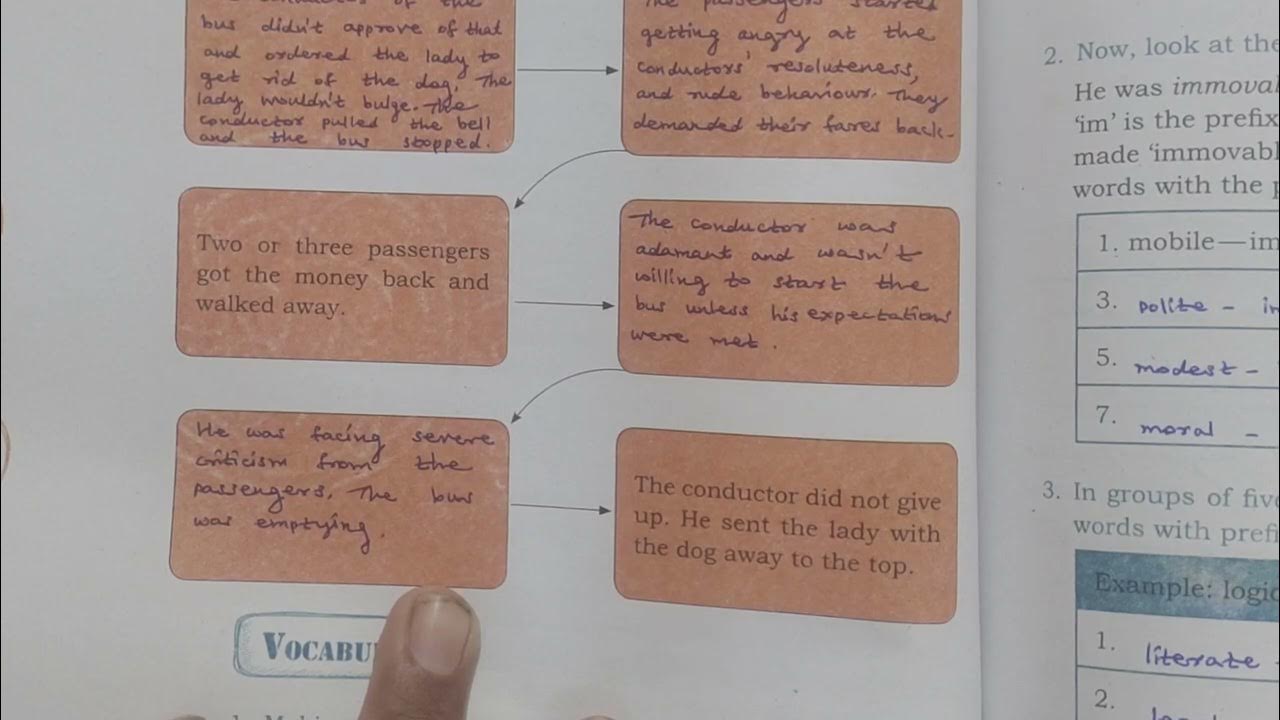 bus didn't approve of that
and ordered the lady to
get rid of the dog. The
lady wouldn't bulge. The
conductor pulled the bell
and the bus stopped.
The passengers started
getting angry at the
conductors' resoluteness,
and rude behaviour. They
demanded their fares back.
Two or three passengers
got the money back and
walked away.
The conductor was
adamant and wasn't
willing to start the
bus unless his expectations
were met.
He was facing severe
criticism from the
passengers. The bus
was emptying.
The conductor did not give
up. He sent the lady with
the dog away to the top.
VOCABU
2. Now, look at the
He was immoval
'im' is the prefix
made 'immovabl
words with the p
1. mobile—im
3. polite - im
5. modest -
7. moral -
3. In groups of five
words with prefi
Example: logic
1. literate -
2.